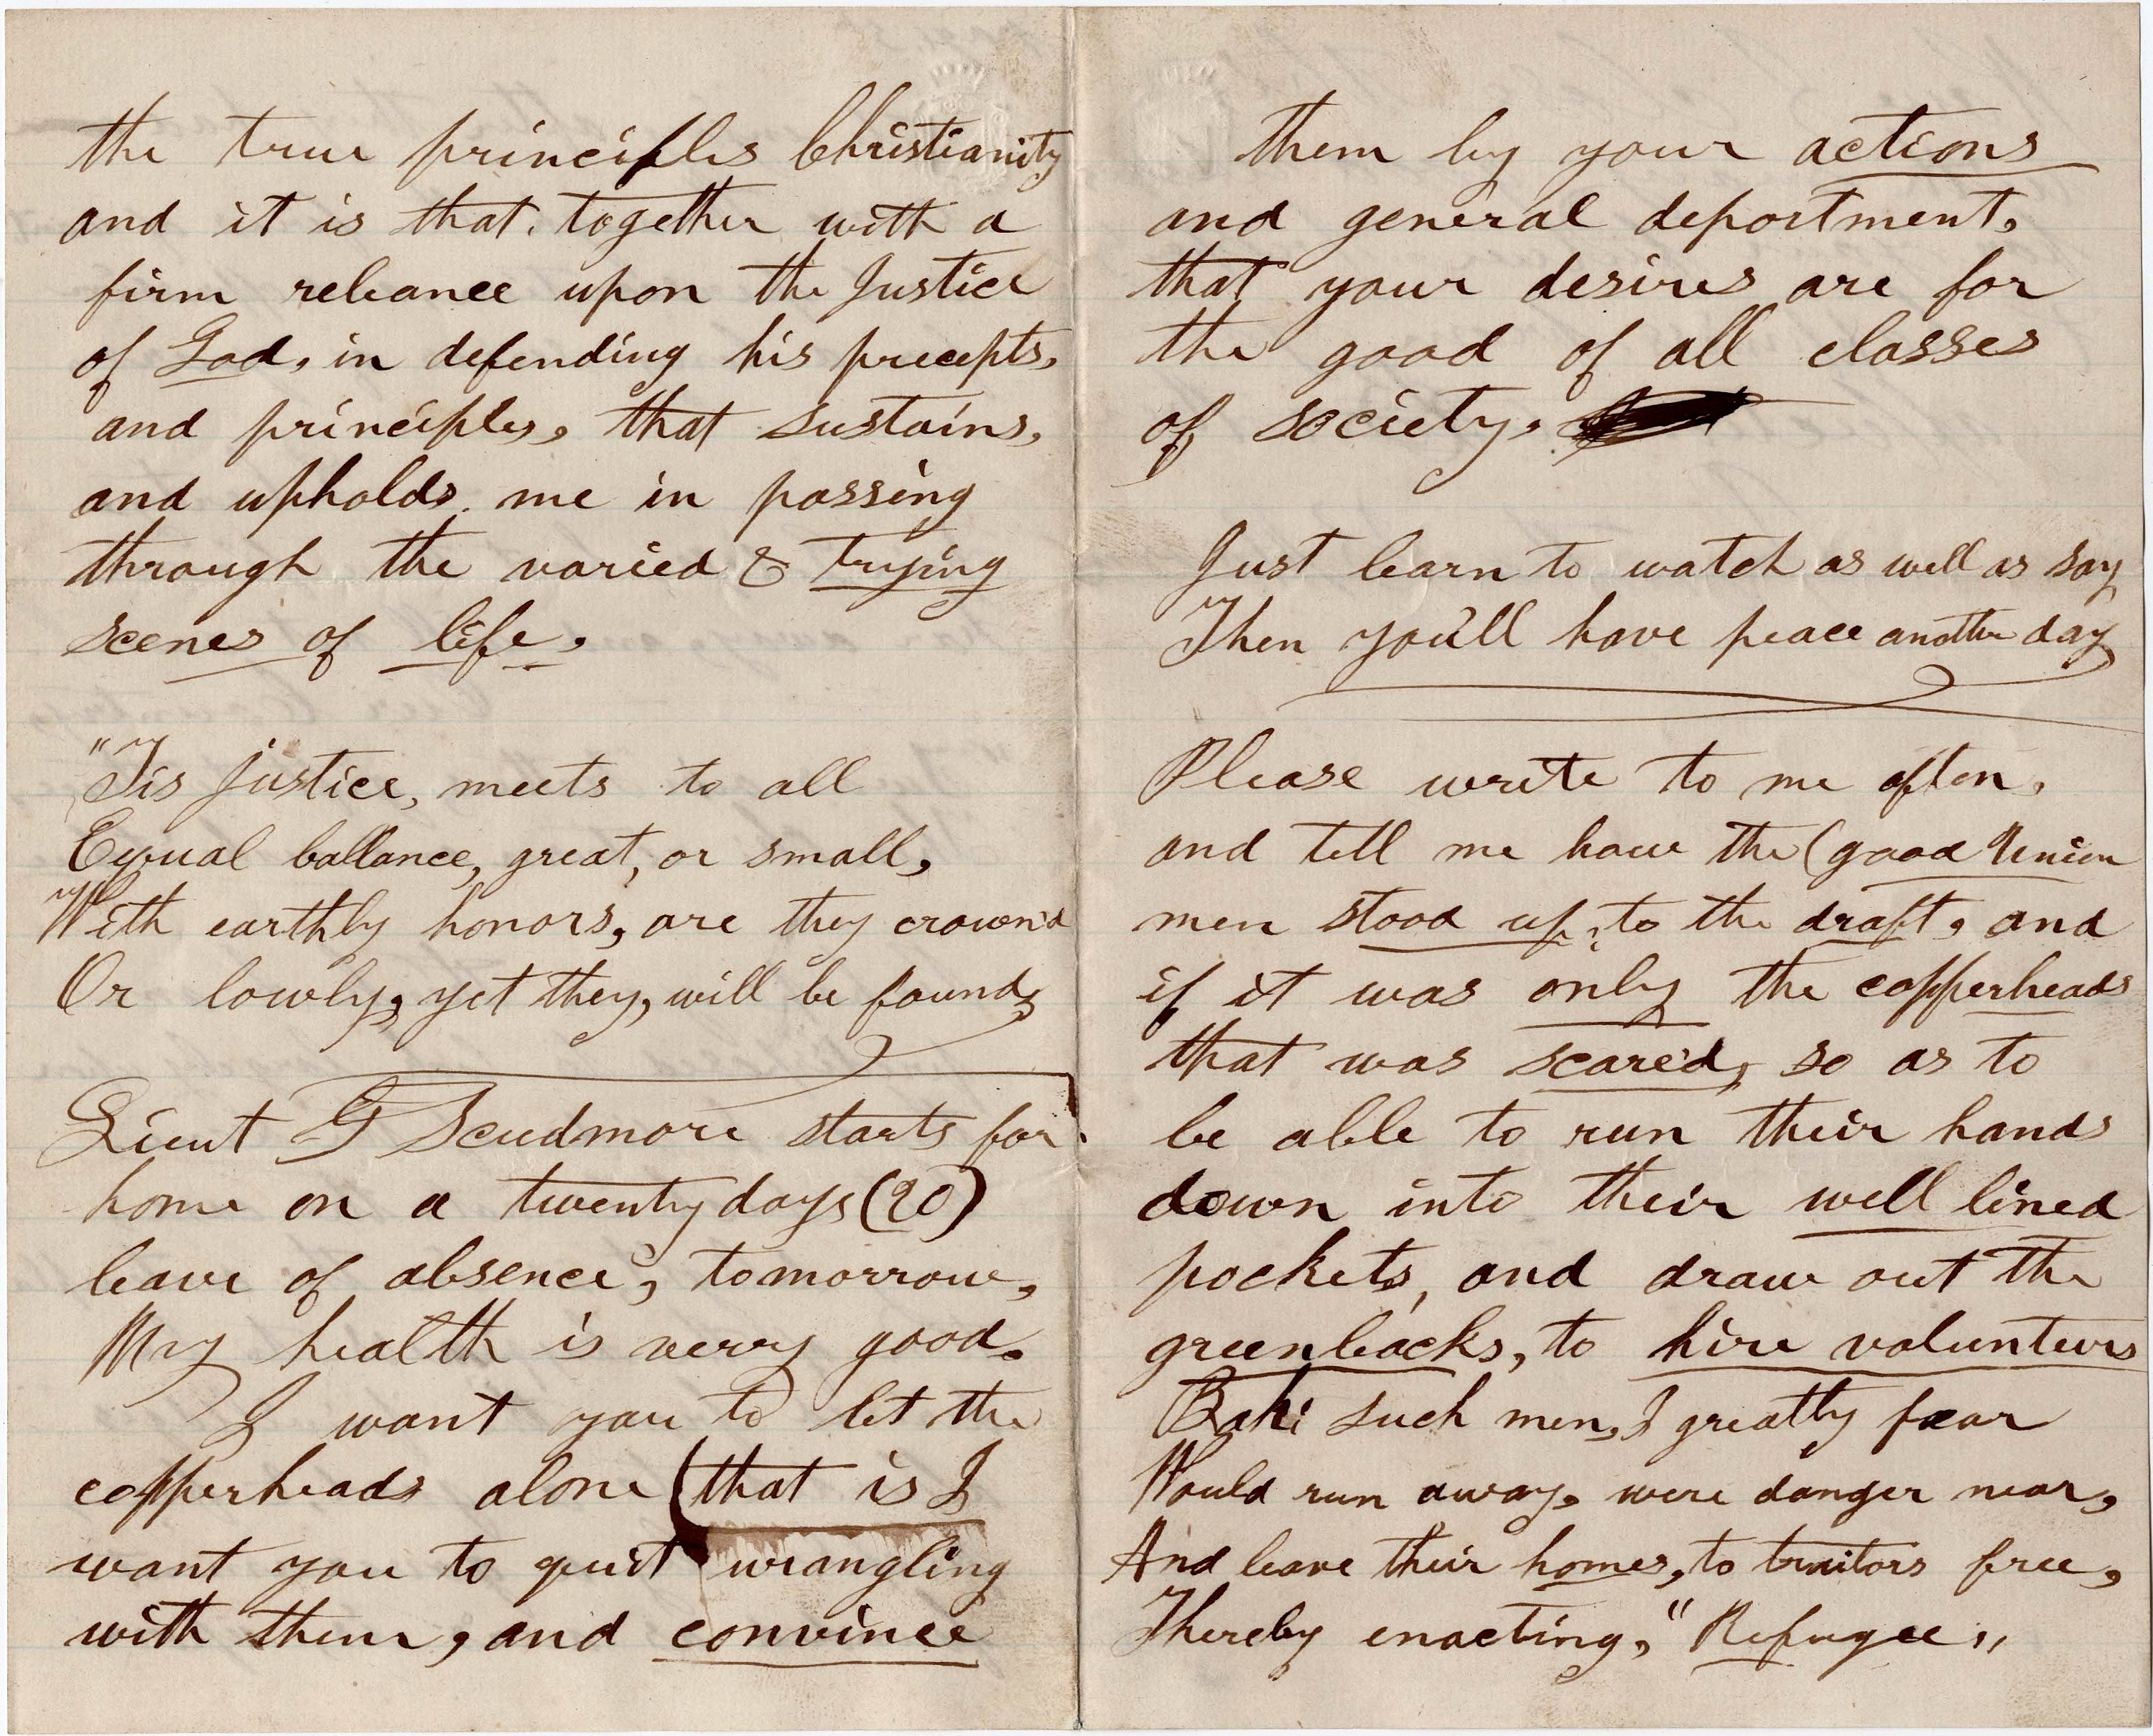 the true principles Christianity
and it is that. together with a
firm reliance upon the Justice
of God, in defending his precepts,
and principles, that sustains,
and upholds. me in passing
through the varied & trying
scenes of life.
"Tis justice, meets to all
Equal ballance, great, or small,
With earthly honors, are they crown'd
Or lowly, yet they, will be found,
Lieut G Scudmore starts for
home on a twenty days (20)
leave of absence, tomorrow,
My health is verry good.
I want you to let the
copperheads alone (that is I
want you to quit wrangling
with them, and convince
them by your actions
and general deportment,
that your desires are for
the good of all classes
of society.
Just learn to watch as well as say
Then you'll have peace another day
Please write to me often,
and tell me how the (good Union
men stood up, to the draft, and
if it was only the copperheads
that was scared, so as to
be able to run their hands
down into their well lined
pockets, and draw out the
greenbacks, to hire volunteers
such men, I greatly fear
Would run away, were danger near,
And leave their homes, to traitors free,
Thereby enacting, "Refugee,"